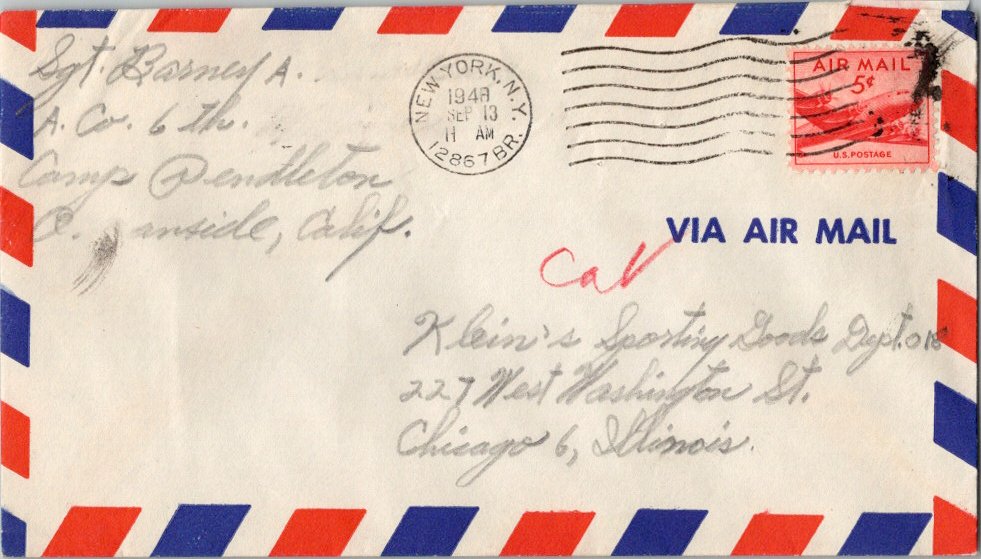 Sgt. Barney A.
A. Co. 6 th.
Camp Pendleton
O. anside, Calif.
NEW YORK, N.Y.
1948
SEP 13
11 AM
12867 BR.
AIR MAIL
5¢
U.S. POSTAGE
VIA AIR MAIL
Cal
Klein's Sporting Goods Dept. 018
227 West Washington St.
Chicago 6, Illinois.